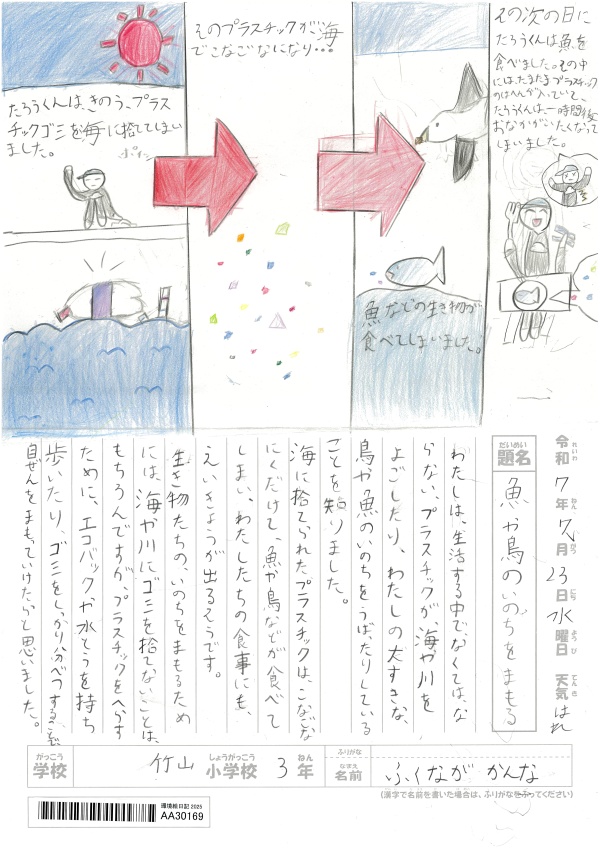 たろうくんは、きのう、プラス
チックゴミを海に捨ててしまい
ました。
ポイッ
そのプラスチックが、海
でこなごなになり・・・
魚などの生き物が
食べてしまいました。
その次の日に
たろうくんは魚を
食べました。その中
には、たまたまプラスチック
のはへんが入っていて、
たろうくんは、一時間後
おなかがいたくなって
しまいました。
令和7年7月23日水曜日 天気 はれ
れいわ ねん がつ にち ようび てんき
だいめい
題名 魚や鳥のいのちをまもる
わたしは、生活する中でなくては、な
らない、プラスチックが、海や川を
よごしたり、わたしの大すきな、
鳥や魚のいのちをうばったりしている
ことを知りました。
海に捨てられたプラスチックは、こなごな
にくだけて、魚や鳥などが食べて
しまい、わたしたちの食事にも、
えいきょうが出るそうです。
生き物たちの、いのちをまもるため
には、海や川にゴミを捨てないことは、
もちろんですが、プラスチックをへらす
ために、エコバックや水とうを持ち
歩いたり、ゴミをしっかり分べつすることで
自ぜんをまもっていけたらと思いました。
がっこう
学校 竹山 小学校 3年
しょうがっこう ねん
ふりがな
なまえ
名前 ふくなが かんな
(漢字で名前を書いた場合は、ふりがなをふってください)
環境絵日記 2025
AA30169